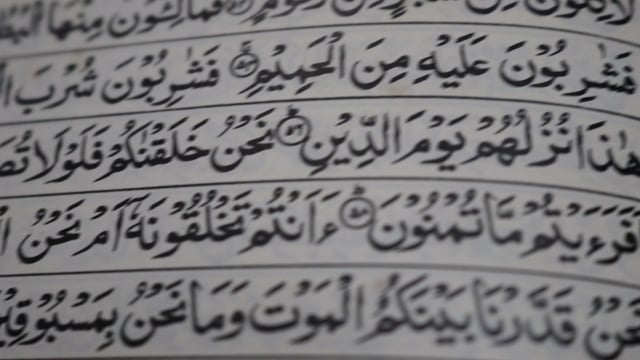 لَاٰكِلُوْنَ مِنْ زَقُّوْمٍ فَمَالِـُٔوْنَ مِنْهَا
فَشٰرِبُوْنَ عَلَيْهِ مِنَ الْحَمِيْمِ ۝۵۴ فَشٰرِبُوْنَ شُرْبَ
هٰذَا نُزُلُهُمْ يَوْمَ الدِّيْنِ ۝۵۶ نَحْنُ خَلَقْنٰكُمْ فَلَوْلَا
اَفَرَءَيْتُمْ مَّا تُمْنُوْنَ ۝۵۸ ءَاَنْتُمْ تَخْلُقُوْنَهٗٓ اَمْ نَحْنُ
نَحْنُ قَدَّرْنَا بَيْنَكُمُ الْمَوْتَ وَمَا نَحْنُ بِمَسْبُوْقِيْنَ